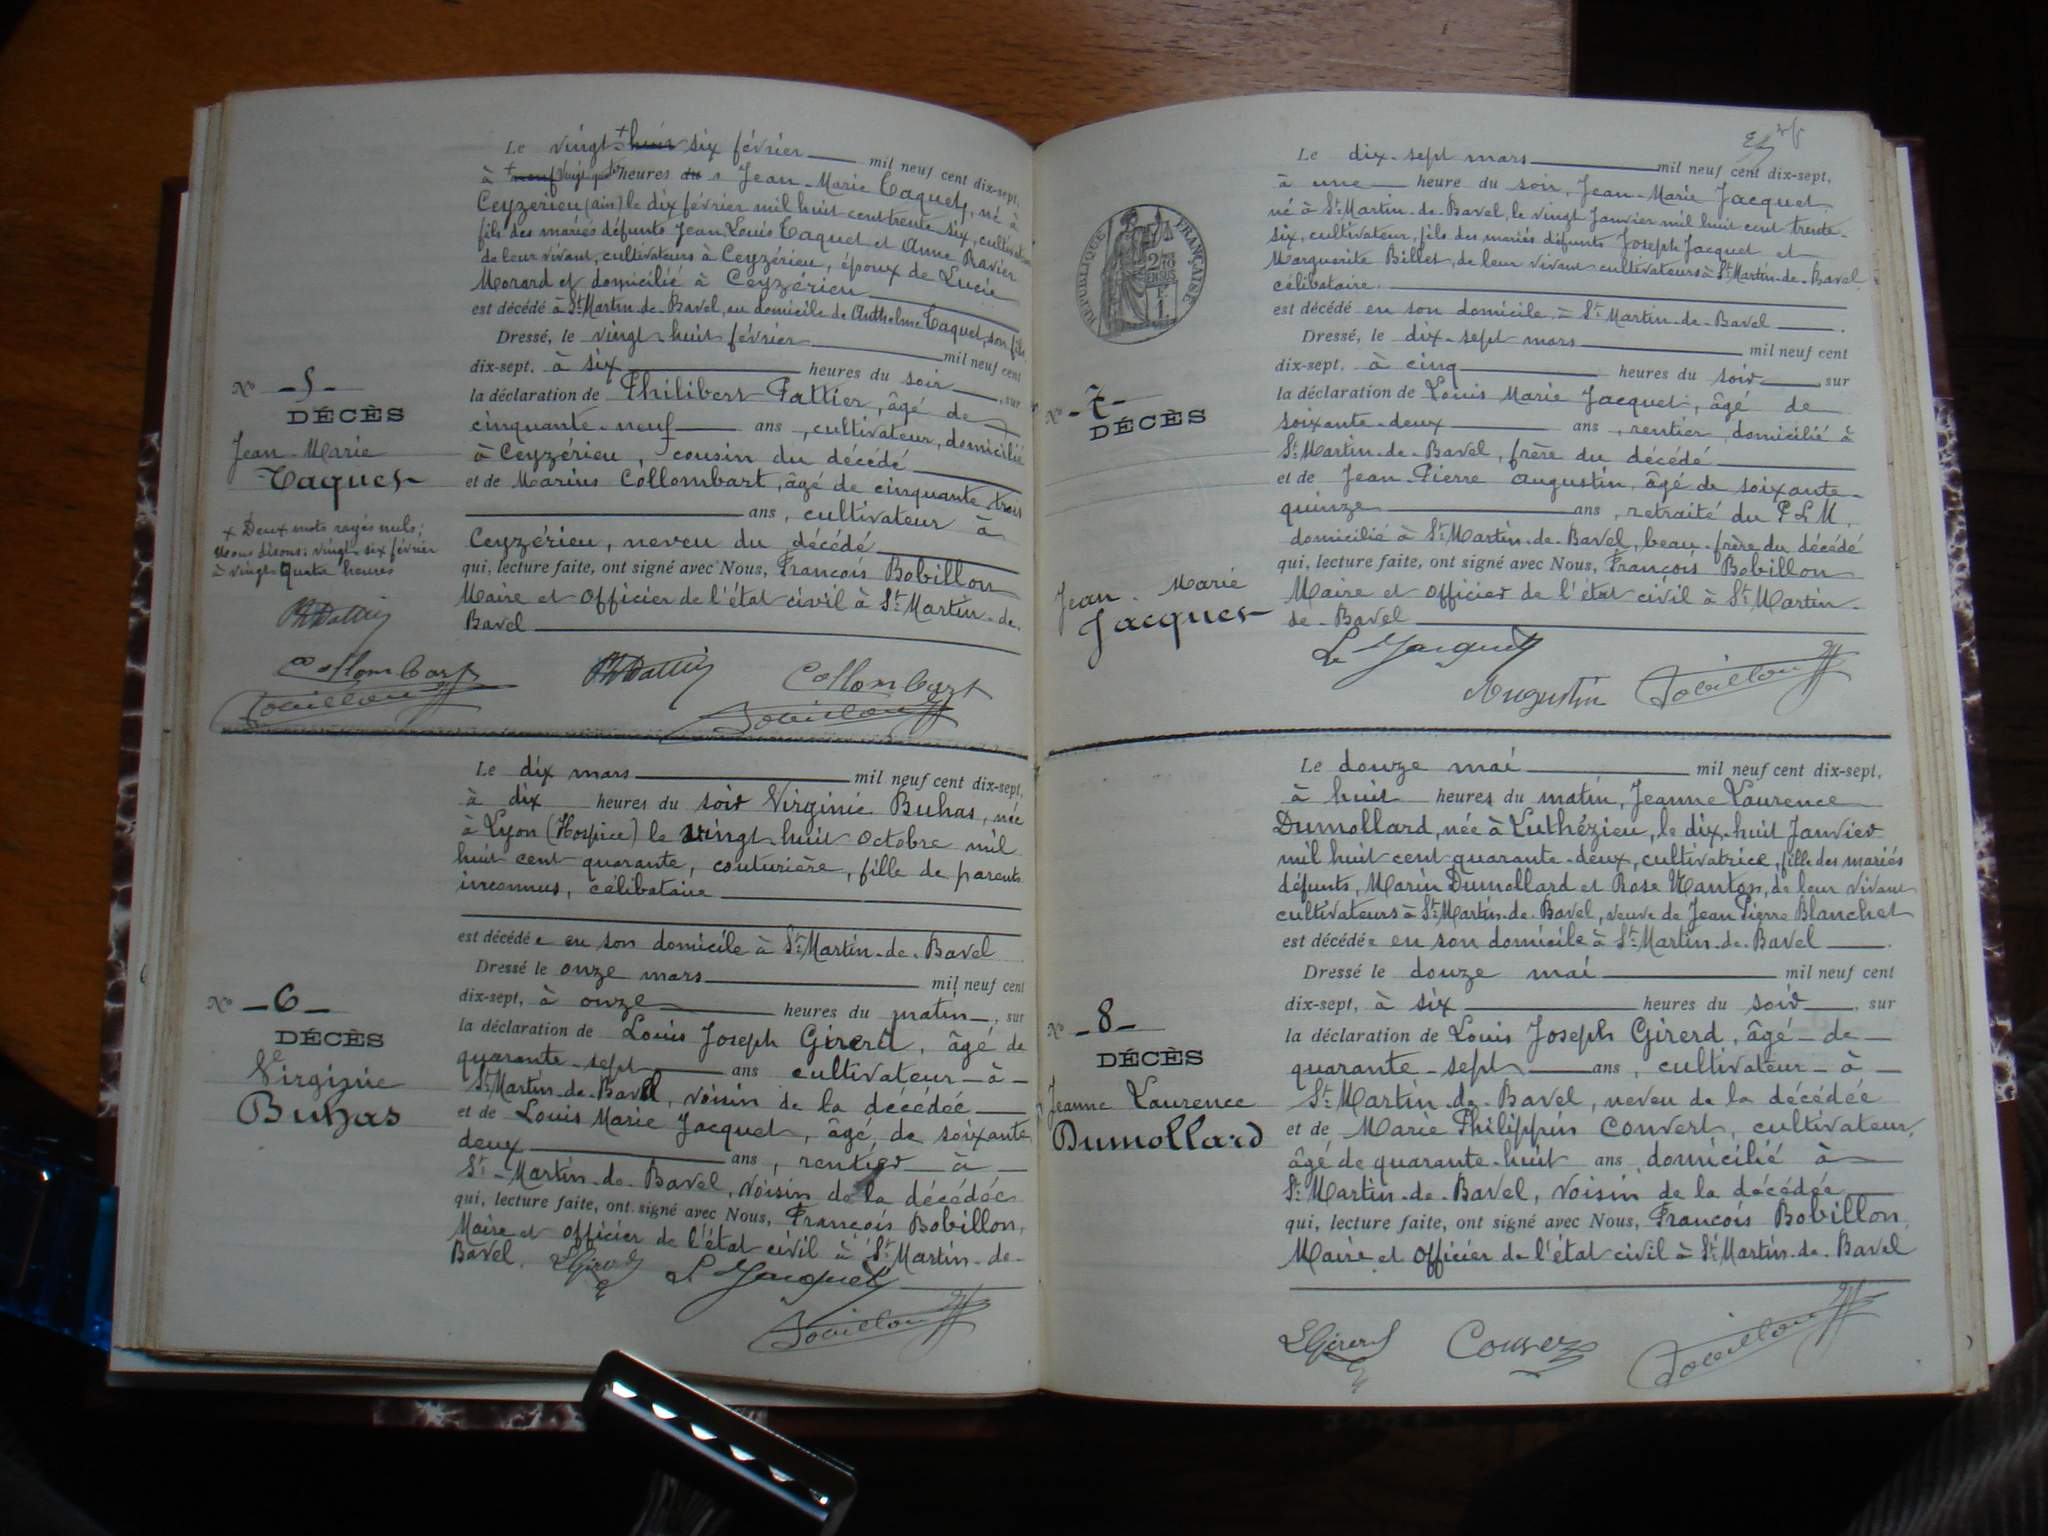 Le vingt + huit six février mil neuf cent dix-sept,
à + neuf vingt quatre heures du Jean-Marie Taquet, né à
Ceyzérieu (ain) le dix février mil huit cent trente-six, cultivateur
fils des mariés défunts Jean Louis Taquet et Anne Ravier
de leur vivant, cultivateurs à Ceyzérieu, époux de Lucie
Morard et domicilié à Ceyzérieu
est décédé à St Martin-de-Bavel, au domicile de Anthelme Taquet, son fils
Dressé, le vingt-huit février mil neuf cent
dix-sept, à six heures du soir, sur
la déclaration de Philibert Pattier, âgé de
cinquante-neuf ans, cultivateur, domicilié
à Ceyzérieu, cousin du décédé
et de Marius Collombart, âgé de cinquante trois
ans, cultivateur à
Ceyzérieu, neveu du décédé
qui, lecture faite, ont signé avec Nous, François Bobillon
Maire et Officier de l'état civil à St Martin-de-
Bavel
No -5-
DÉCÈS
Jean-Marie
Taquet
x Deux mots rayés nuls;
Nous disons: vingt-six février
à vingt-quatre heures
Collombart
Bobillon
Collombart
Bobillon
Le dix mars mil neuf cent dix-sept,
à dix heures du soir Virginie Buhas, née
à Lyon (Hospice) le vingt-huit octobre mil
huit cent quarante, couturière, fille de parents
inconnus, célibataire
est décédée en son domicile à St Martin-de-Bavel
Dressé le onze mars mil neuf cent
dix-sept, à onze heures du matin, sur
la déclaration de Louis Joseph Girerd, âgé de
quarante-sept ans cultivateur à
St Martin-de-Bavel, voisin de la décédée
et de Louis Marie Jacquet, âgé de soixante
deux ans, rentier à
St-Martin-de-Bavel, voisin de la décédée
qui, lecture faite, ont signé avec Nous, François Bobillon,
Maire et officier de l'état civil à St Martin-de-
Bavel. LGirerd L. Jacquet
Bobillon
No -6-
DÉCÈS
Virginie
Buhas
Le dix-sept mars mil neuf cent dix-sept,
à une heure du soir, Jean-Marie Jacquet,
né à St Martin-de-Bavel, le vingt Janvier mil huit cent trente-
six, cultivateur, fils des mariés défunts Joseph Jacquet et
Marguerite Billet, de leur vivant cultivateurs à St Martin-de-Bavel,
célibataire.
est décédé en son domicile à St Martin-de-Bavel.
Dressé, le dix-sept mars mil neuf cent
dix-sept, à cinq heures du soir, sur
la déclaration de Louis Marie Jacquet, âgé de
soixante-deux ans, rentier, domicilié à
St Martin-de-Bavel, frère du décédé
et de Jean-Pierre Augustin, âgé de soixante-
quinze ans, retraité du P L M,
domicilié à St Martin-de-Bavel, beau-frère du décédé
qui, lecture faite, ont signé avec Nous, François Bobillon
Maire et officier de l'état civil à St Martin-
de-Bavel
L. Jacquet
Augustin Bobillon
RÉPUBLIQUE FRANÇAISE
No -7-
DÉCÈS
Jean-Marie
Jacquet
Le douze mai mil neuf cent dix-sept,
à huit heures du matin, Jeanne Laurence
Dumollard, née à Luthézieu, le dix-huit Janvier
mil huit cent quarante-deux, cultivatrice, fille des mariés
défunts, Marin Dumollard et Rose Manton, de leur vivant
cultivateurs à St Martin-de-Bavel, veuve de Jean Pierre Blanchet
est décédée en son domicile à St Martin-de-Bavel.
Dressé le douze mai mil neuf cent
dix-sept, à six heures du soir, sur
la déclaration de Louis Joseph Girerd, âgé de
quarante-sept ans, cultivateur à
St Martin-de-Bavel, neveu de la décédée
et de Marie Philippin Convert, cultivateur,
âgé de quarante-huit ans domicilié à
St Martin-de-Bavel, voisin de la décédée
qui, lecture faite, ont signé avec Nous, François Bobillon,
Maire et Officier de l'état civil à St Martin-de-Bavel
LGirerd Convert Bobillon
No -8-
DÉCÈS
Jeanne Laurence
Dumollard